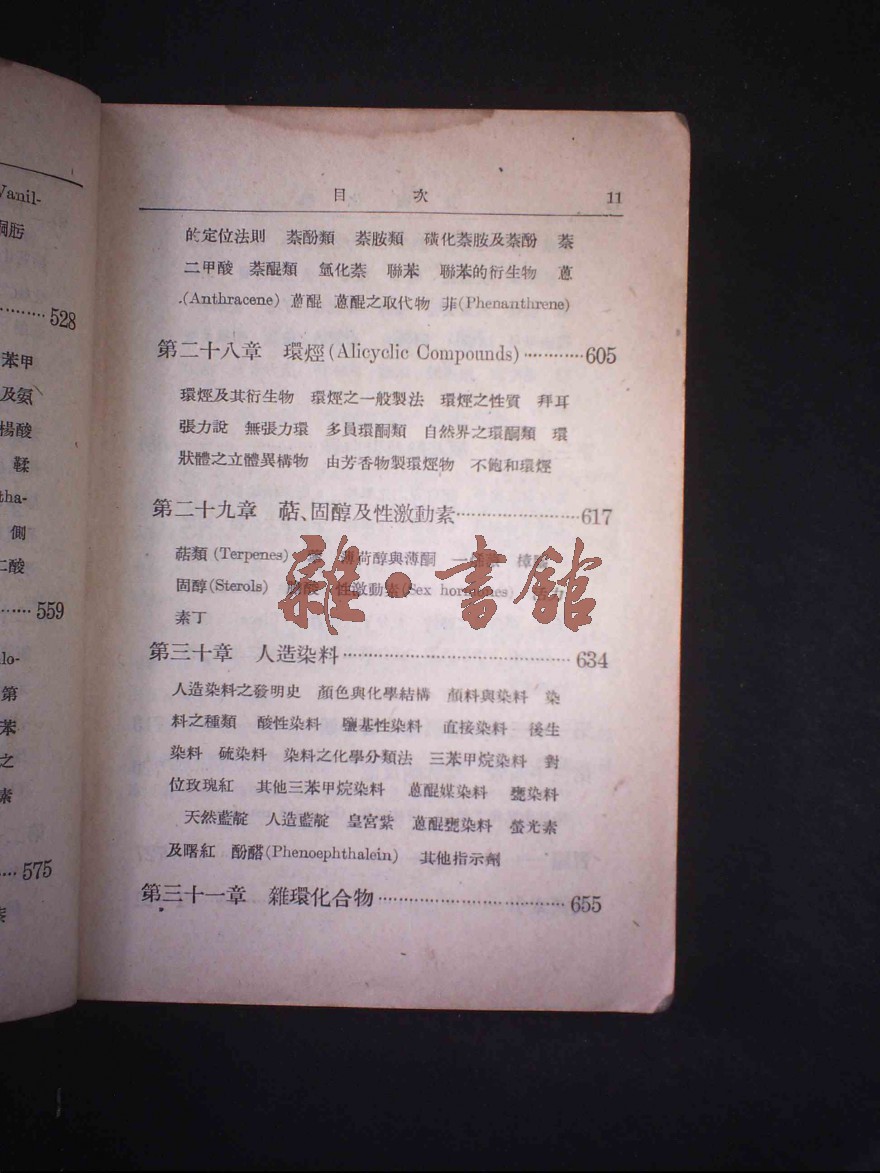 Vanil-
528
苯甲
及氨
楊酸
鞣
tha-
側
二酸
559
lo-
第
苯
之
素
575
目 次 11
的定位法則 萘酚類 萘胺類 磺化萘胺及萘酚 萘
二甲酸 萘醌類 氫化萘 聯苯 聯苯的衍生物 蒽
(Anthracene) 蒽醌 蒽醌之取代物 菲(Phenanthrene)
第二十八章 環烴(Alicyclic Compounds)············605
環烴及其衍生物 環烴之一般製法 環烴之性質 拜耳
張力說 無張力環 多員環酮類 自然界之環酮類 環
狀體之立體異構物 由芳香物製環烴物 不飽和環烴
第二十九章 萜、固醇及性激動素························617
萜類(Terpenes) 薄荷醇與薄酮 樟腦
固醇(Sterols) 性激動素(Sex hormones)
素丁
雜·書館
第三十章 人造染料············································634
人造染料之發明史 顏色與化學結構 顏料與染料 染
料之種類 酸性染料 鹽基性染料 直接染料 後生
染料 硫染料 染料之化學分類法 三苯甲烷染料 對
位玫瑰紅 其他三苯甲烷染料 蒽醌媒染料 甕染料
天然藍靛 人造藍靛 皇宮紫 蒽醌甕染料 螢光素
及曙紅 酚醛(Phenoephthalein) 其他指示劑
第三十一章 雜環化合物····································655